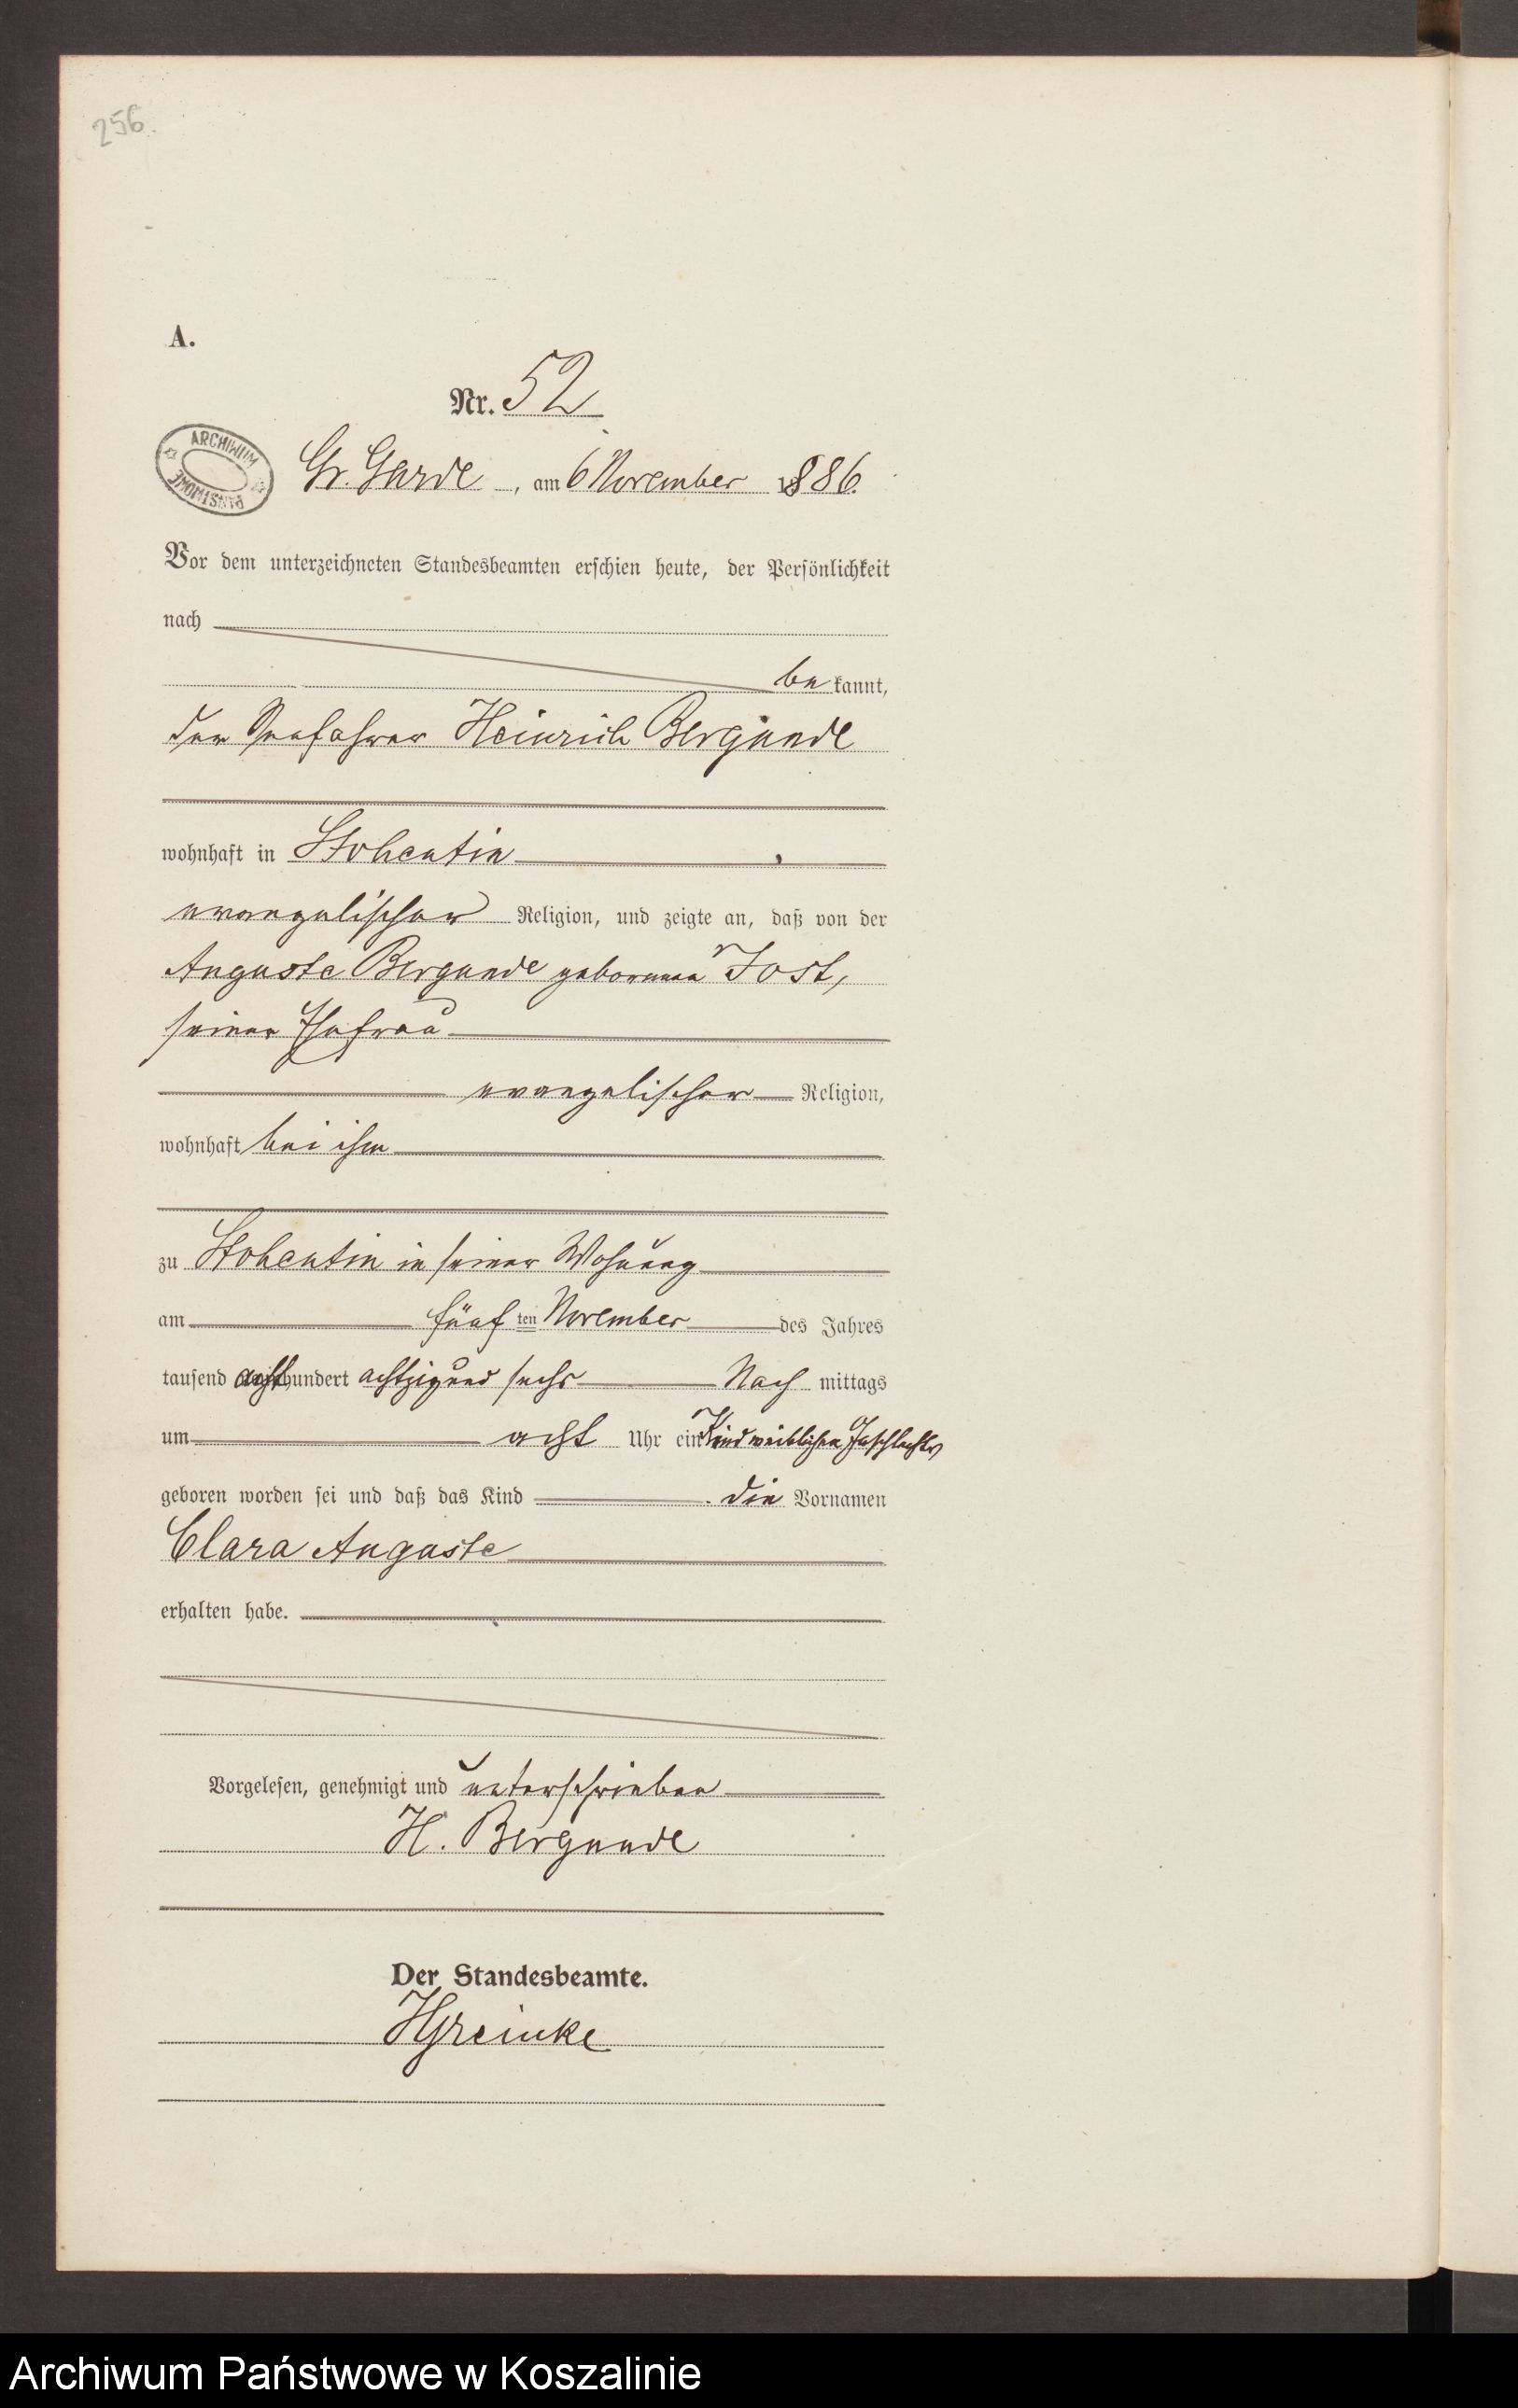 256.
A.
Nr. 52
ARCHIWUM PAŃSTWOWE
Gr. Garde, am 6 November 1886.
Vor dem unterzeichneten Standesbeamten erschien heute, der Persönlichkeit
nach
bekannt,
der Seefahrer Heinrich Bergunde
wohnhaft in Stohentin
evangelischer Religion, und zeigte an, daß von der
Auguste Bergunde geborenen Jost,
seiner Ehefrau
evangelischer Religion,
wohnhaft bei ihm
zu Stohentin in seiner Wohnung
am fünften November des Jahres
tausend achthundert achtzig und sechs Nachmittags
um acht Uhr ein Kind weiblichen Geschlechts
geboren worden sei und daß das Kind die Vornamen
Clara Auguste
erhalten habe.
Vorgelesen, genehmigt und unterschrieben
H. Bergunde
Der Standesbeamte.
Archiwum Państwowe w Koszalinie